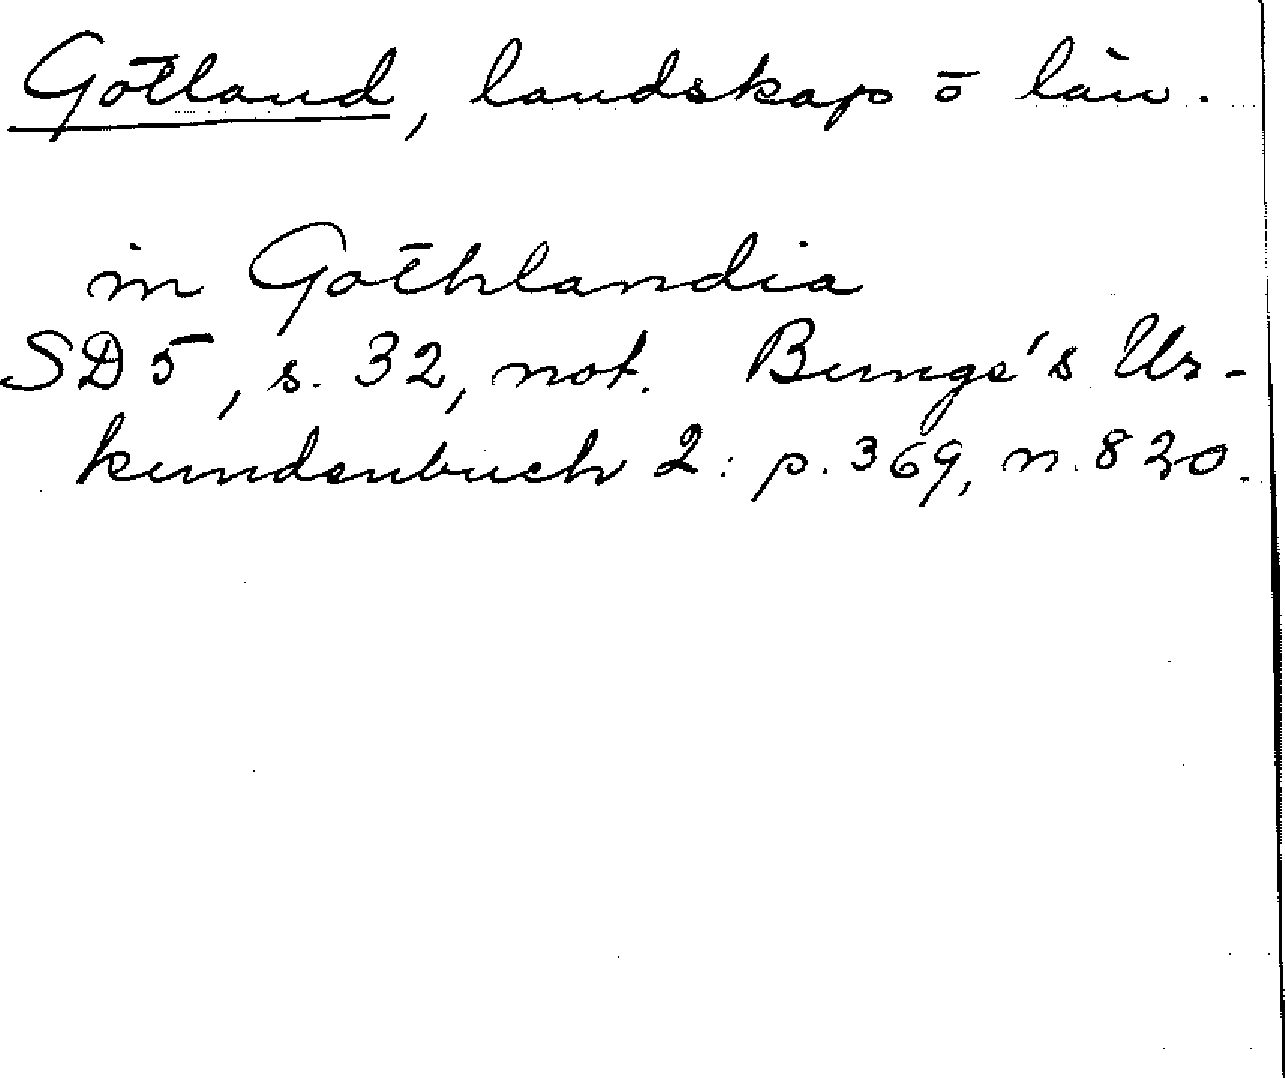 Gotland, landskap o län.
in Gothlandia
SD 5, s. 32, not. Bunge's Ur-
kundenbuch 2: p. 369, n. 820.